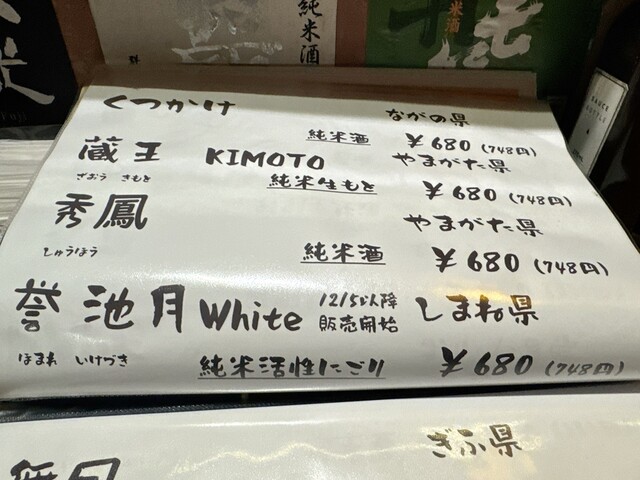 純米酒
米酒
くつかけ ながの県
純米酒 ¥680 (748円)
蔵王 KIMOTO やまがた県
ざおう きもと
純米生もと ¥680 (748円)
秀鳳 やまがた県
しゅうほう
純米酒 ¥680 (748円)
誉池月 White 12/5以降 しまね県
販売開始
ほまれ いけづき
純米活性にごり ¥680 (748円)
ぎふ県